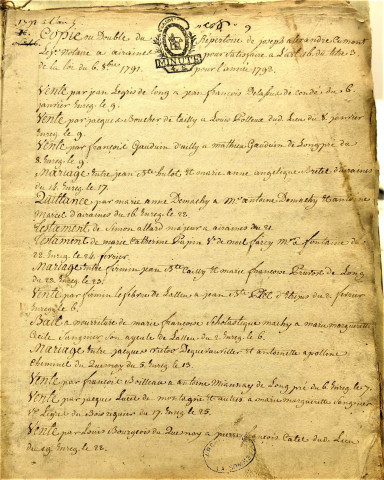 1792 L'an 3
Copie ou Double du Répertoire de joseph alexandre Cumont
Notaire a airaines pour satisfaire a L'art. 16 du titre 3
de la loi du 6 8bre 1791. pour l'année 1792.
MINUTE
Vente par jean Legris de long a jean françois Delafus de condé du 6
janvier Enreg. le 9.
Vente par jacques Boucher de tailly a Louis dud Lieu du 8 janvier
Enreg. le 9.
Vente par françois Gauduin d'ailly a mathieu Gauduin de Longpré du
8 Enreg. le 9.
Mariage entre jean Bte hulot et marie anne angelique d'airaines
du 14 Enreg. le 17.
Quittance par marie anne Demachy a Me antoine Demachy et
Marcel d'airaines du 16 Enreg. le 22.
Testament de Simon allard majeur a airaines du 21.
Testament de marie Catherine Papin Ve de mel farcy Md a fontaine du
22 Enreg. le 24 fevrier.
Mariage Entre firmin jean Bte Cailly et marie françoise de Long
du 22 Enreg. le 23.
Vente par firmin Lefebvre de Lalleu a jean Bte du 2 fevrier
Enreg. le 6.
Bail a nourriture de marie françoise Scholastique machy a marie marguerite
Cecile Sangnier Son ayeule de Lalleu du 2 Enreg. le 6.
Mariage Entre jacques Dequevauviller et antoinette apolline
Cheminel du Quesnoy du 5 Enreg. le 13.
Vente par François Boilleau a antoine Maunay de Longpré du 6 Enreg. le 7.
Vente par jacques Lucet de montagne et autres a marie marguerite Sangnier
Ve de Boisrault du 17 Enreg. le 25.
Vente par Louis Bourgeois du Quesnoy a pierre françois Catel dud Lieu
du 19 Enreg. le 22.